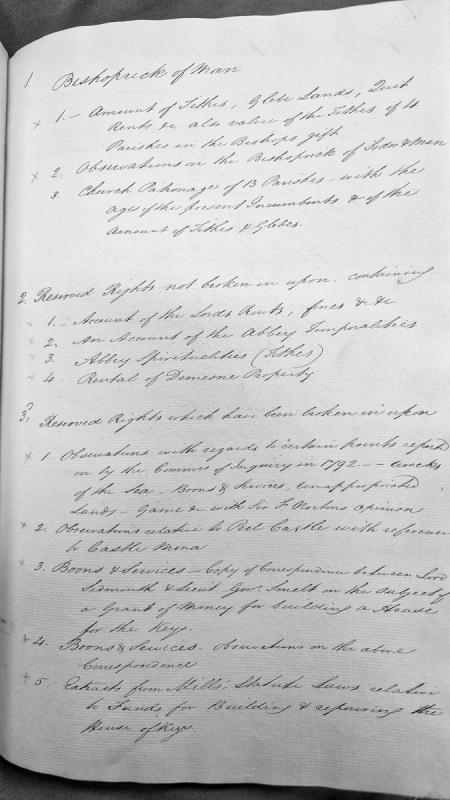 1. Bishoprick of Man
x 1. - Amount of Tithes, Glebe Lands, Quit
Rents &c, also value of the Tithes of 4
Parishes in the Bishops gift
x 2. Observations on the Bishoprick of Sodor & Man
3. Church Patronage of 13 Parishes - with the
ages of the present Incumbents & of the
amount of Tithes & Glebes.
2. Reserved Rights not broken in upon. containing
x 1. - Account of the Lords Rents, fines &c &c
x 2. An Account of the Abbey Temporalities
x 3. Abbey Spiritualities (Tithes)
x 4. Rental of Demesne Property
3. Reserved Rights which have been broken in upon
x 1. Observations with regards to certain points reported
on by the Commrs of Inquiry in 1792 - - Wrecks
of the Sea - Boons & Services, unappropriated
Lands - Game &c with Sir F. Nortons opinion
x 2. Observations relative to Peel Castle with reference
to Castle Mona
x 3. Boons & Services - Copy of Correspondence between Lord
Sidmouth & Lieut Govr. Smelt on the subject of
a Grant of Money for building a House
for the Keys.
x 4. Boons & Services. Observations on the above
Correspondence
x 5. Extracts from Mills' Statute Laws relative
to Funds for Building & repairing the
House of Keys.